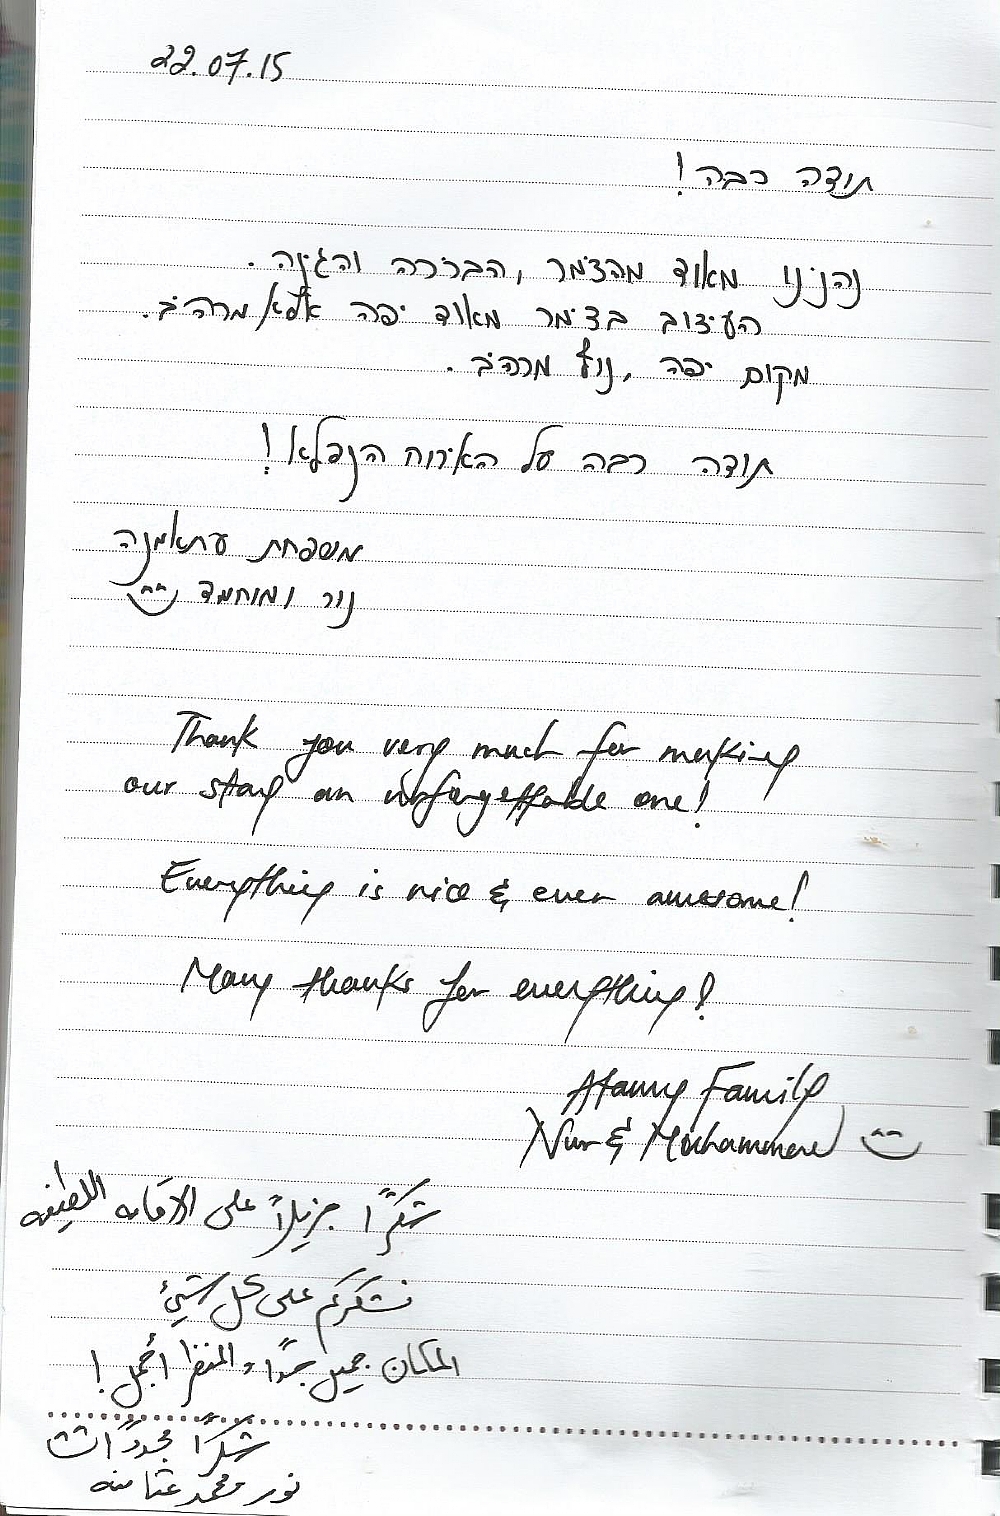 22.07.15
תודה רבה!
נהנינו מאוד מהצימר, הבריכה והגינה.
העיצוב בצימר מאוד יפה אפילו מרהיב.
מקום יפה, נוף מרהיב.
תודה רבה על האירוח הנפלא!
משפחת עתאמנה
נור ומוחמד
Thank you very much for making
our stay an unforgettable one!
Everything is nice & even awesome!
Many thanks for everything!
Atamny Family
Nur & Mouhammed
شكراً جزيلاً على الاقامه اللطيفه
نشكركم على كل شيئ
المكان جميل جداً والمنظر أجمل!
شكراً مجدداً
نور ومحمد عثامنه